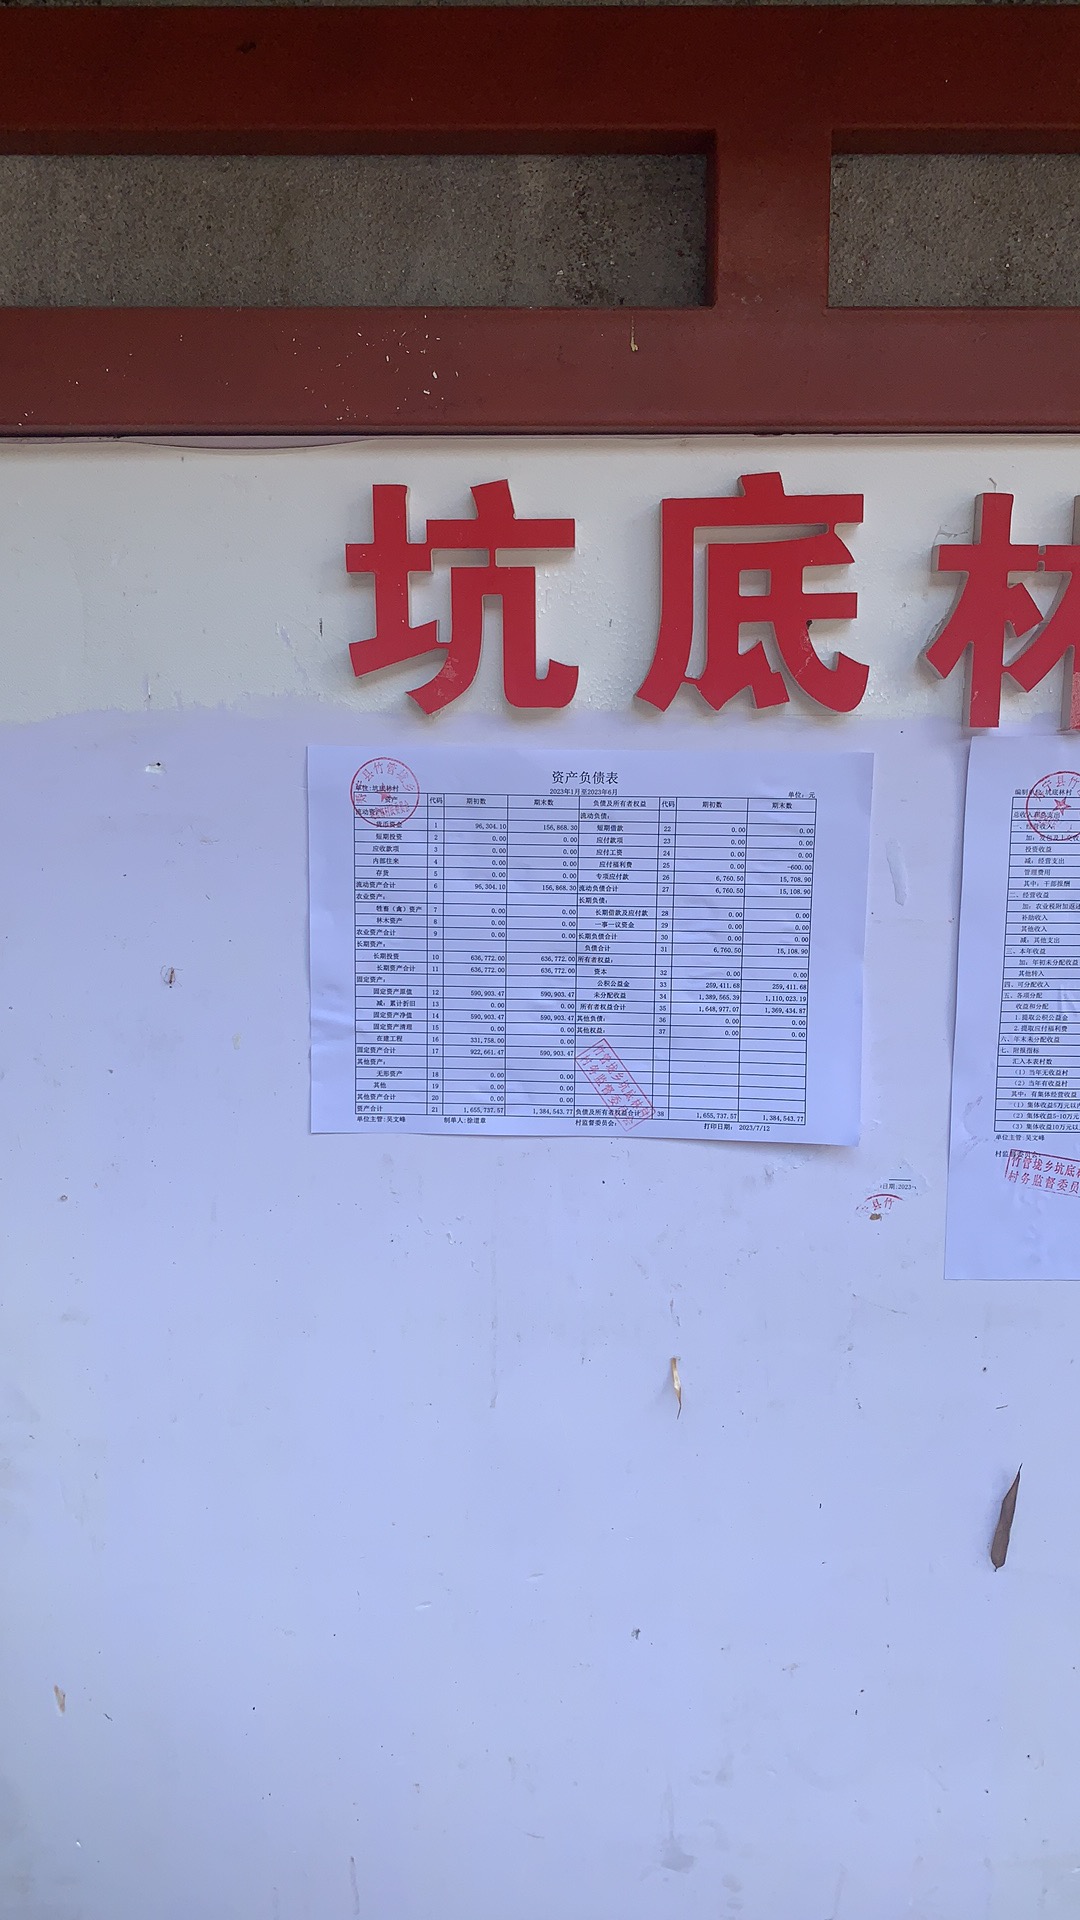 坑底林
资产负债表
2023年1月至2023年6月
单位:坑底林村 单位:元
资产 代码 期初数 期末数 负债及所有者权益 代码 期初数 期末数
流动资产: 流动负债:
货币资金 1 96,304.10 156,868.30 短期借款 22 0.00 0.00
短期投资 2 0.00 0.00 应付款项 23 0.00 0.00
应收款项 3 0.00 0.00 应付工资 24 0.00 0.00
内部往来 4 0.00 0.00 应付福利费 25 0.00 -600.00
存货 5 0.00 0.00 专项应付款 26 6,760.50 15,708.90
流动资产合计 6 96,304.10 156,868.30 流动负债合计 27 6,760.50 15,108.90
农业资产: 长期负债:
牲畜（禽）资产 7 0.00 0.00 长期借款及应付款 28 0.00 0.00
林木资产 8 0.00 0.00 一事一议资金 29 0.00 0.00
农业资产合计 9 0.00 0.00 长期负债合计 30 0.00 0.00
长期资产: 负债合计 31 6,760.50 15,108.90
长期投资 10 636,772.00 636,772.00 所有者权益:
长期资产合计 11 636,772.00 636,772.00 资本 32 0.00 0.00
固定资产: 公积公益金 33 259,411.68 259,411.68
固定资产原值 12 590,903.47 590,903.47 未分配收益 34 1,389,565.39 1,110,023.19
减:累计折旧 13 0.00 0.00 所有者权益合计 35 1,648,977.07 1,369,434.87
固定资产净值 14 590,903.47 590,903.47 其他负债: 36 0.00 0.00
固定资产清理 15 0.00 0.00 其他权益: 37 0.00 0.00
在建工程 16 331,758.00 0.00
固定资产合计 17 922,661.47 590,903.47
其他资产:
无形资产 18 0.00 0.00
其他 19 0.00 0.00
其他资产合计 20 0.00 0.00
资产合计 21 1,655,737.57 1,384,543.77 负债及所有者权益合计 38 1,655,737.57 1,384,543.77
单位主管:吴文峰 制单人:徐道章 村监督委员会: 打印日期: 2023/7/12
竹管垅乡坑底林
村务监督委员会
县竹管垅乡
编制单位:坑底林村
总收入和总支出
一、经营收入
投资收益
减:经营支出
管理费用
其中:干部报酬
二、经营收益
加:农业税附加返还
补助收入
其他收入
减:其他支出
三、本年收益
加:年初未分配收益
其他转入
四、可分配收入
五、各项分配
收益和分配
1.提取公积公益金
2.提取应付福利费
六、年末未分配收益
七、附报指标
汇入本表村数
(1)当年无收益村
(2)当年有收益村
其中:有集体经营收益
(1)集体收益5万元以
(2)集体收益5-10万元
(3)集体收益10万元以
单位主管:吴文峰
村监督委员会:
竹管垅乡坑底
村务监督委员
宁县竹
日期:2023
县竹